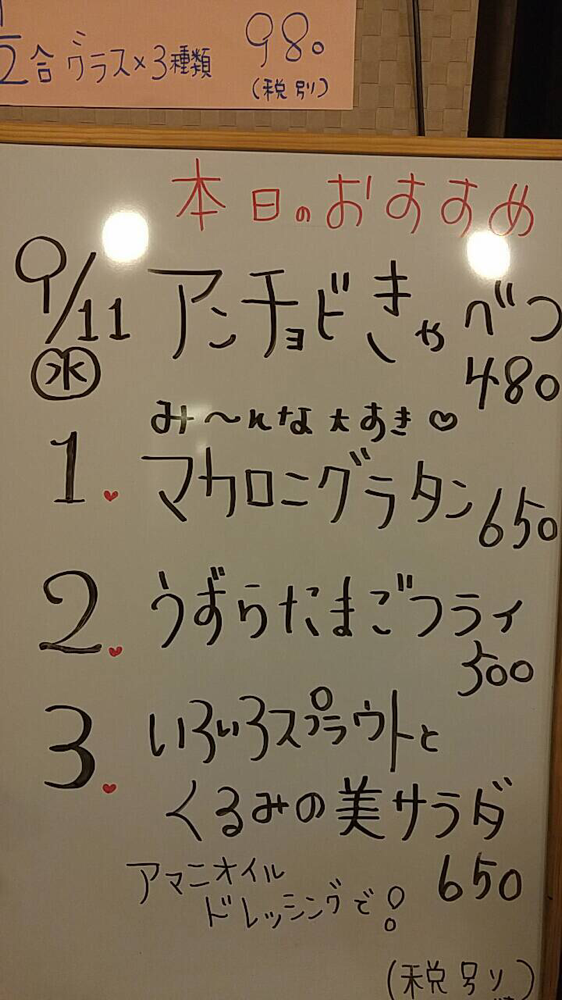 1/2合グラス×3種類 980
(税別)
本日のおすすめ
9/11 アンチョビきゃべつ
㊌ 480
み〜んな大すき♡
1. マカロニグラタン 650
2. うずらたまごフライ
500
3. いろいろスプラウトと
くるみの美サラダ
アマニオイル 650
ドレッシングで!
(税別)